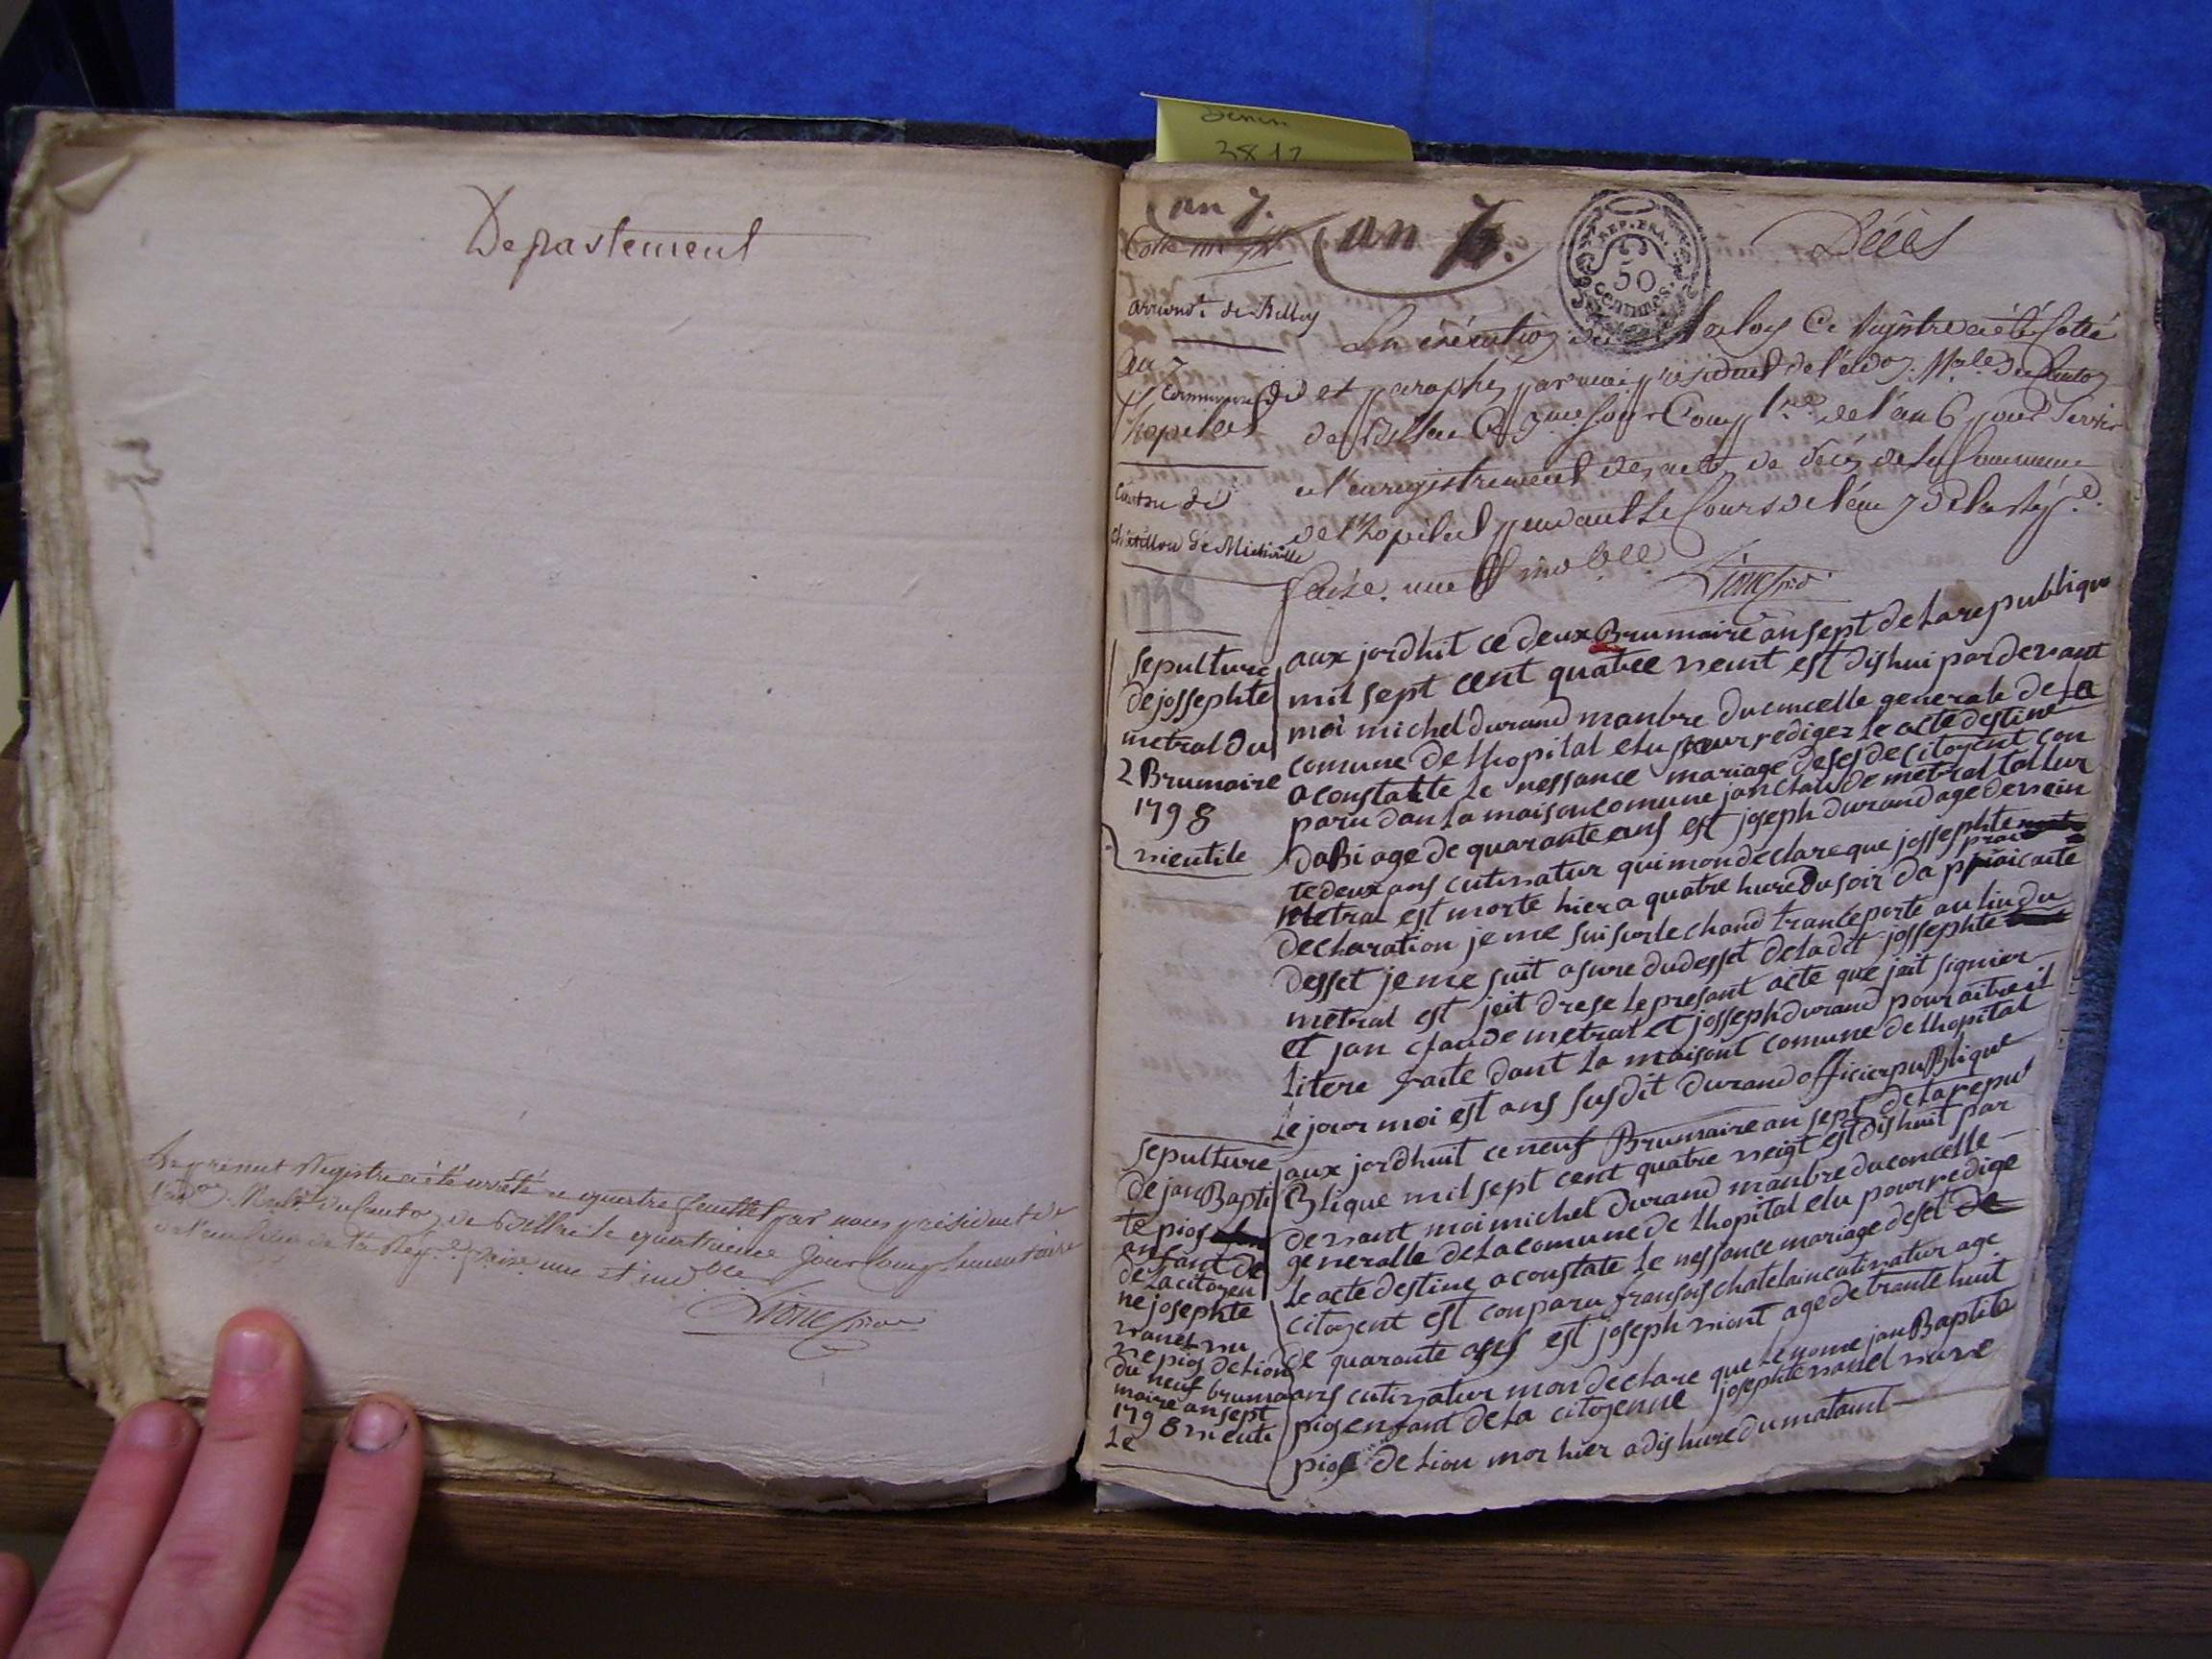 Departement
Le présent Registre a été arrété a quatre feuillets par nous président de
l'ad.on Male du Canton de Billiat le quatrieme Jour Complementaire
de l'an Six de la Rép.e fraise une et ind.ble
an 7.
an 7.
REP. FRA.
50
CENTIMES.
Décès
arrond.t de Belley
an 7
Commune de
l'hopital
Canton de
Châtillon de Michaille
1798
En éxécution de la loy Ce Registre a été Cotté
et paraphé par moi président de l'adon. Male du Canton
de Billiat Ce 3me Jour Compl.re de l'an 6 pour Servir
a l'enregistrement des actes de décès de la Commune
de l'hopital pendant le Cours de l'an 7 de la Rép.e
fraise. une et ind.ble
sepulture
de jossephte
metral du
2 Brumaire
1798
vieutile
aux jordhit ce deux Brumaire an sept de la republique
mil sept cent quatre veint est dishui par devant
moi michel durand manbre du concelle generale de la
comune de lhopital elu pour rediger le acte destine
a constatte le nessance mariage deses de citoyent con
paru dan la maison comune jan claude metral tallur
dabi age de quarante ans est joseph durand age de vein
te deux ans cutivatur qui mon declare que jossephte
metral est morte hier a quatre hure du soir da prai caite
declaration je me sui sur le chand tranceporte au liu du
desset je me suit asure du desset de la dit jossephte
metral est jait drese le presant acte que jait signier
et jan claude metral et josseph durand pour aitre il
litere faite dant la maisont comune de lhopital
le jour moi est ans susdit durand officier publique
sepulture
de jan Bapti
te pios
anfant de
de la citoyen
ne josephte
vanel vu
ve pios de lion
du neuf bruma
maire an sept
1798 vieuti
le
aux jordhuit ce neuf Brumaire an sept de la repu
Blique mil sept cent quatre veigt est dishuit par
devant moi michel durand manbre du concelle
generalle de la comune de lhopital elu pour redige
le acte destine a constate le nessance mariage deset de
citoyent est conparu fransois chatelain cutivatur age
de quarante ans est joseph viont age de trante huit
ans cutivatur mon declare que le nome jan Baptite
pios enfant de la citoyenne josephte vanel vuve
pios de lion mor hier a dis hure du mataint